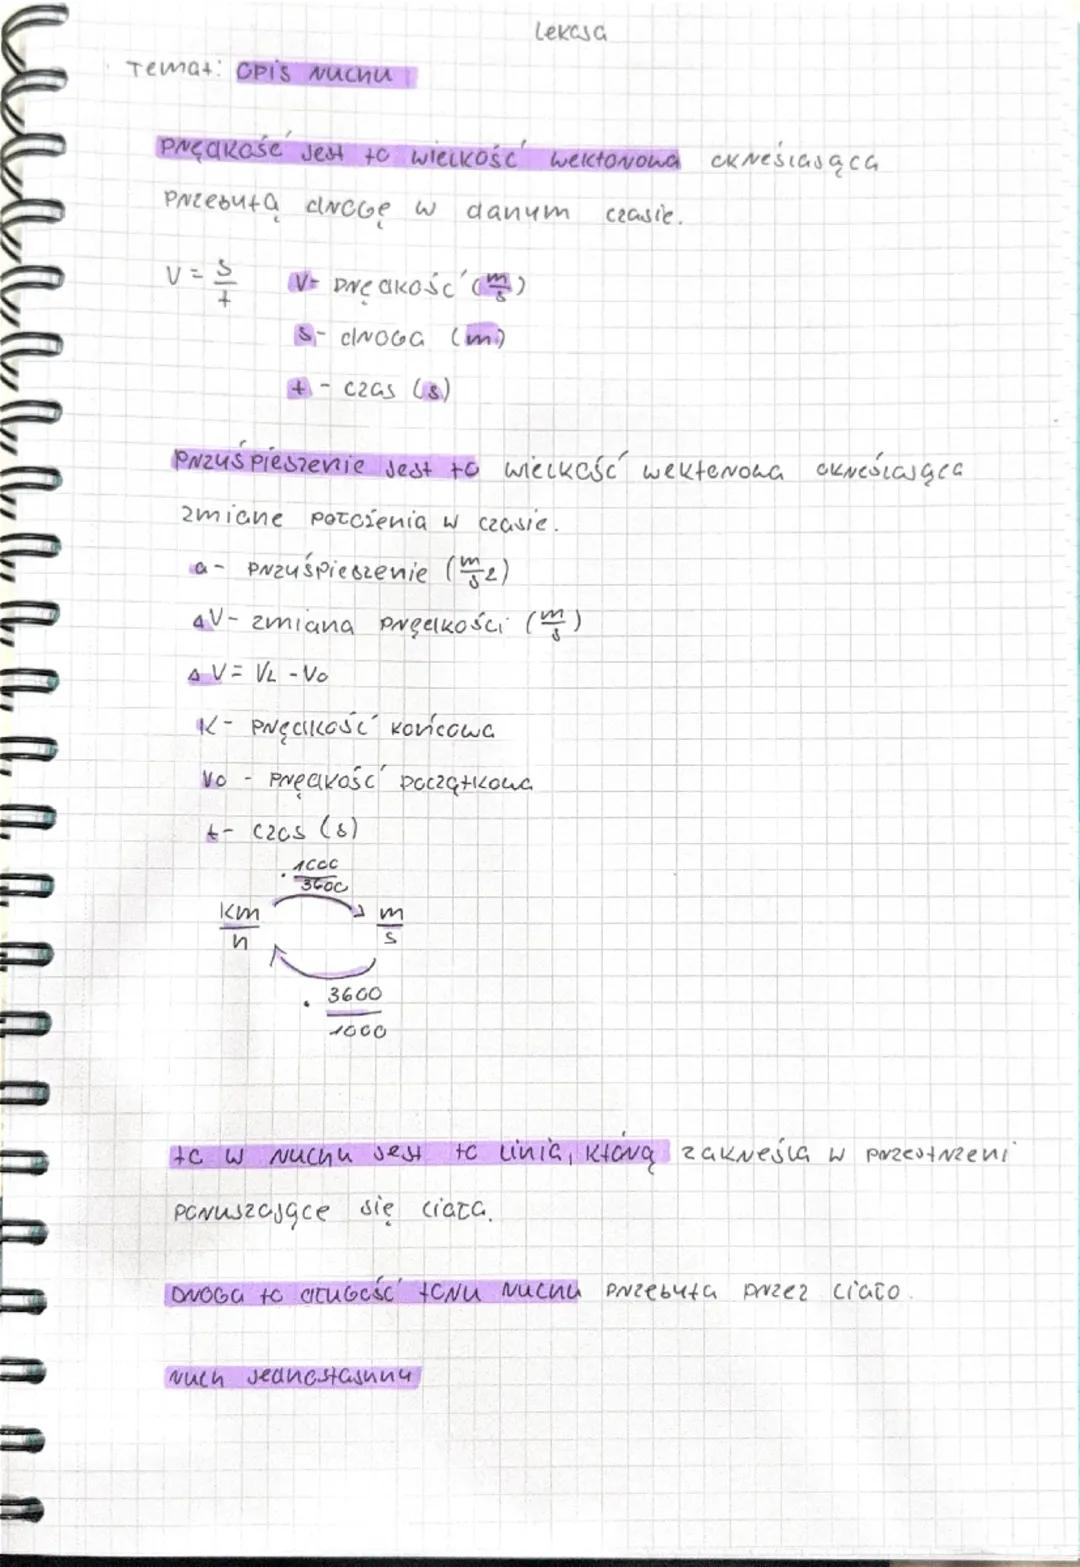 Lekcja
Temat: Opis ruchu
Prędkość jest to wielkość wektorowa określająca
przebytą drogę w danym czasie.
V = s/t V- prędkość (m/s)
s- droga (m)
t - czas (s)
Przyśpieszenie jest to wielkość wektorowa określająca
zmiane położenia w czasie.
a - przyśpieszenie (m/s2)
ΔV- zmiana prędkości (m/s)
ΔV = VL - Vo
K - prędkość końcowa
Vo - prędkość początkowa
t - czas (s)
· 1000/3600
km/h m/s
· 3600/1000
to w ruchu jest to linia, którą zakreśla w przestrzeni
poruszające się ciała.
Droga to długość toru ruchu przebyta przez ciało.
Ruch jednostajny